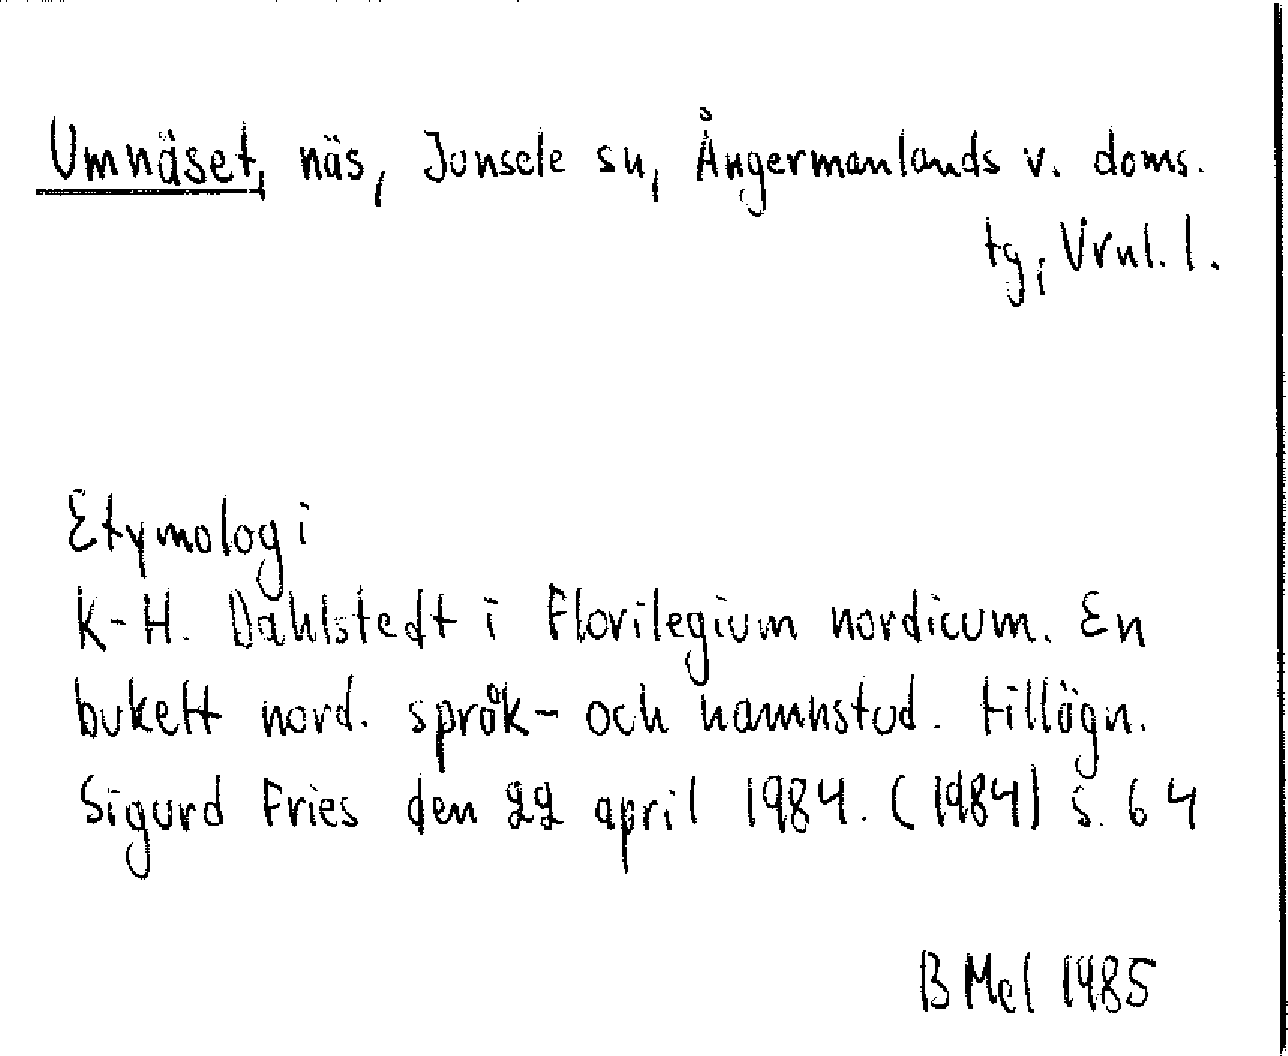 Umnäset, näs, Junsele sn, Ångermanlands v. doms.
tg, Vrnl. l.
Etymologi
K-H. Dahlstedt i Florilegium nordicum. En
bukett nord. språk- och namnstud. tillägn.
Sigurd Fries den 22 april 1984. (1984) s. 64
B Mel 1985